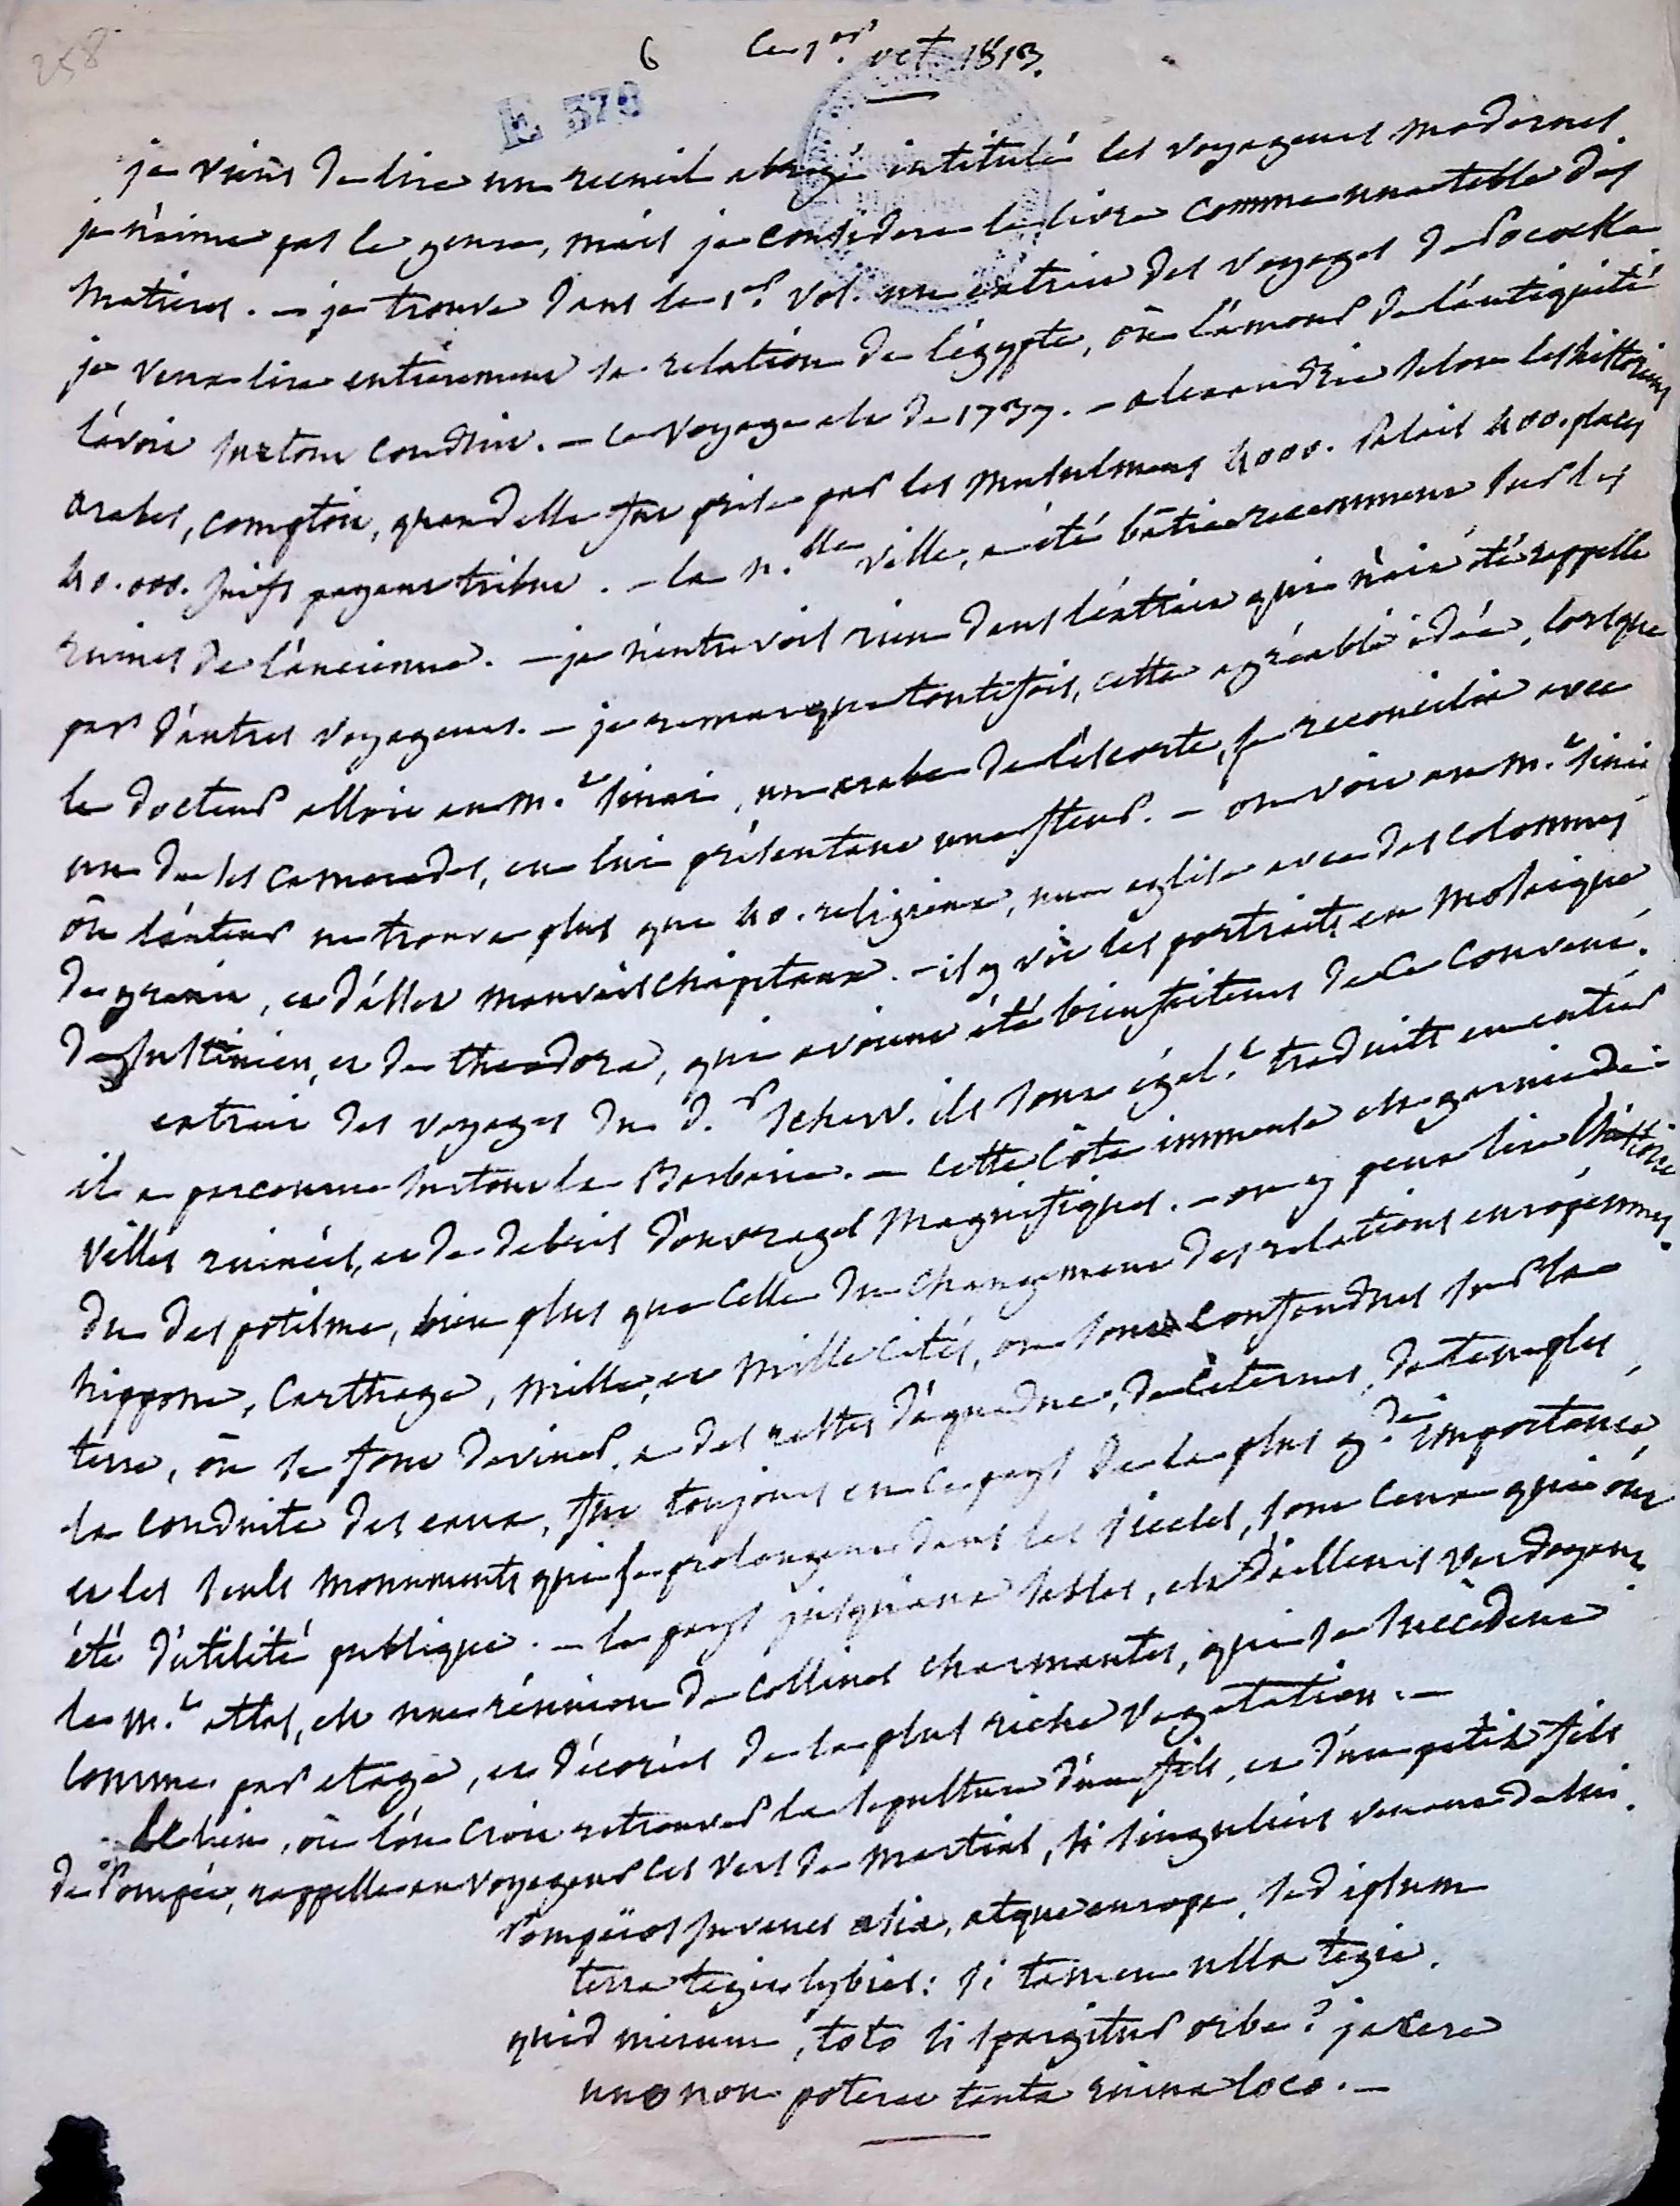 258
6 Ce 1er. oct. 1813.
E 378
je viens de lire un recueil abrégé intitulé les voyageurs modernes.
je n'aime pas le genre, mais je considere le livre comme une table des
matieres. – je trouve dans le 1er. vol. un extrait des voyages de Pococke
je veux lire entierement sa relation de l'égypte, où l'amour de l'antiquité
l'avoit surtout conduit. – ce voyage est de 1737. – alexandrie selon les historiens
arabes, comptoit, quand elle fut prise par les musulmans 4000. palais 400. places
40.000. juifs payant tribut. – la n.lle ville, a été bâtie recemment sur les
ruines de l'ancienne. – je n'entrevois rien dans l'extrait qui n'ait été rappellé
par d'autres voyageurs. – je remarque toutefois, cette agréable idée, lorsque
le docteur alloit au m.t sinai, un arabe de l'escorte, se reconcilia avec
un de ses camarades, en lui présentant une fleur. – on voit au m.t sinai
où l'auteur ne trouva plus que 40. religieux, une eglise avec des colonnes
de granit, et d'assez mauvais chapiteaux. – il y vit les portraits en mosaique
de justinien, et de theodora, qui avoient été bienfaiteurs de ce convent.
extrait des voyages du d.r Schaw. ils sont égal.t traduits en entier
il a parcouru surtout la Barbarie. – cette côte immense est garnie de
villes ruinées, et de debris d'ouvrages magnifiques. – on y peut lire l'histoire
du despotisme, bien plus que celle du changement des relations européennes.
hippone, Carthage, mille, et mille cités, ou sont confondues sur la
terre, ou se font deviner, a des restes d'aqueduc, de citernes, de temples,
la conduite des eaux, fut toujours en ce pays de la plus g.de importance,
et les seuls monuments qui se prolongent dans les siecles, sont ceux qui ont
été d'utilité publique. – le pays jusqu'aux sables, est d'ailleurs verdoyant
le m.t atlas, est une réunion de collines charmantes, qui se succèdent
comme par etage, et décorées de la plus riche vegetation. –
où l'on croit retrouver la sepulture d'un fils, et d'un petit fils
de Pompée, rappelle au voyageur ces vers de martial, si singuliers venant de lui.
Pompeïos juvenes asia, atque europa, sed ipsum
terra tegit lybies: si tamen ulla tegit.
quid mirum, toto si spargitur orbe? jacere
uno non poterat tanta ruina loco. –